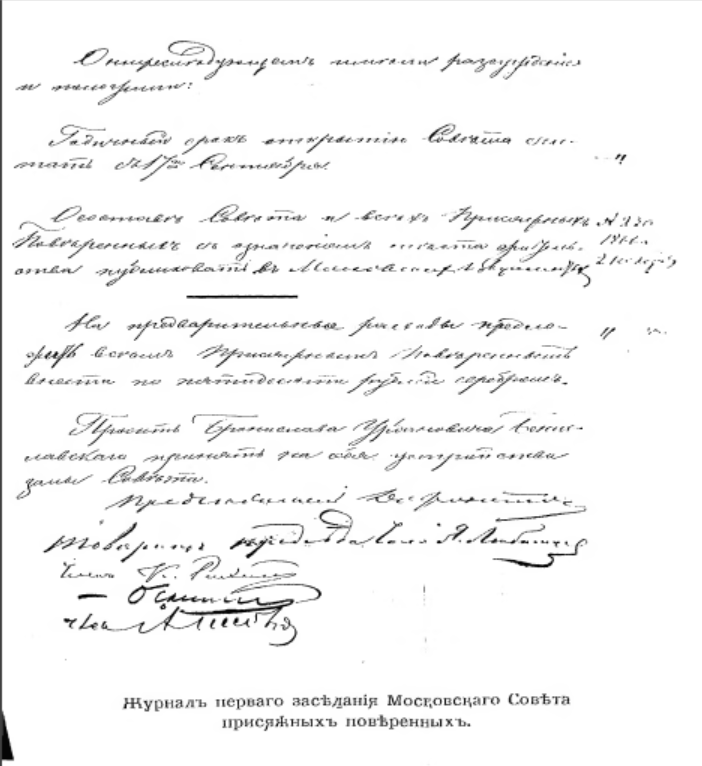 О нижеследующемъ имели разсуждение
и положили:
Годичный срокъ открытию Совѣта счи-
тать съ 17го Сентября.
О составѣ Совѣта и всѣхъ Присяжныхъ
Повѣренныхъ съ означениемъ места житель-
ства публиковать въ Московскихъ
На предварительные расходы предло-
жить всѣмъ Присяжнымъ Повѣреннымъ
внести по пятидесяти рублей серебромъ.
Просить Бронислава Урбановича Бени-
славскаго принять на себя устройство
залы Совѣта.
Председатель
Товарищъ председателя Я. Любимцев
Членъ К.
Журналъ перваго засѣданія Московскаго Совѣта
присяжныхъ повѣренныхъ.